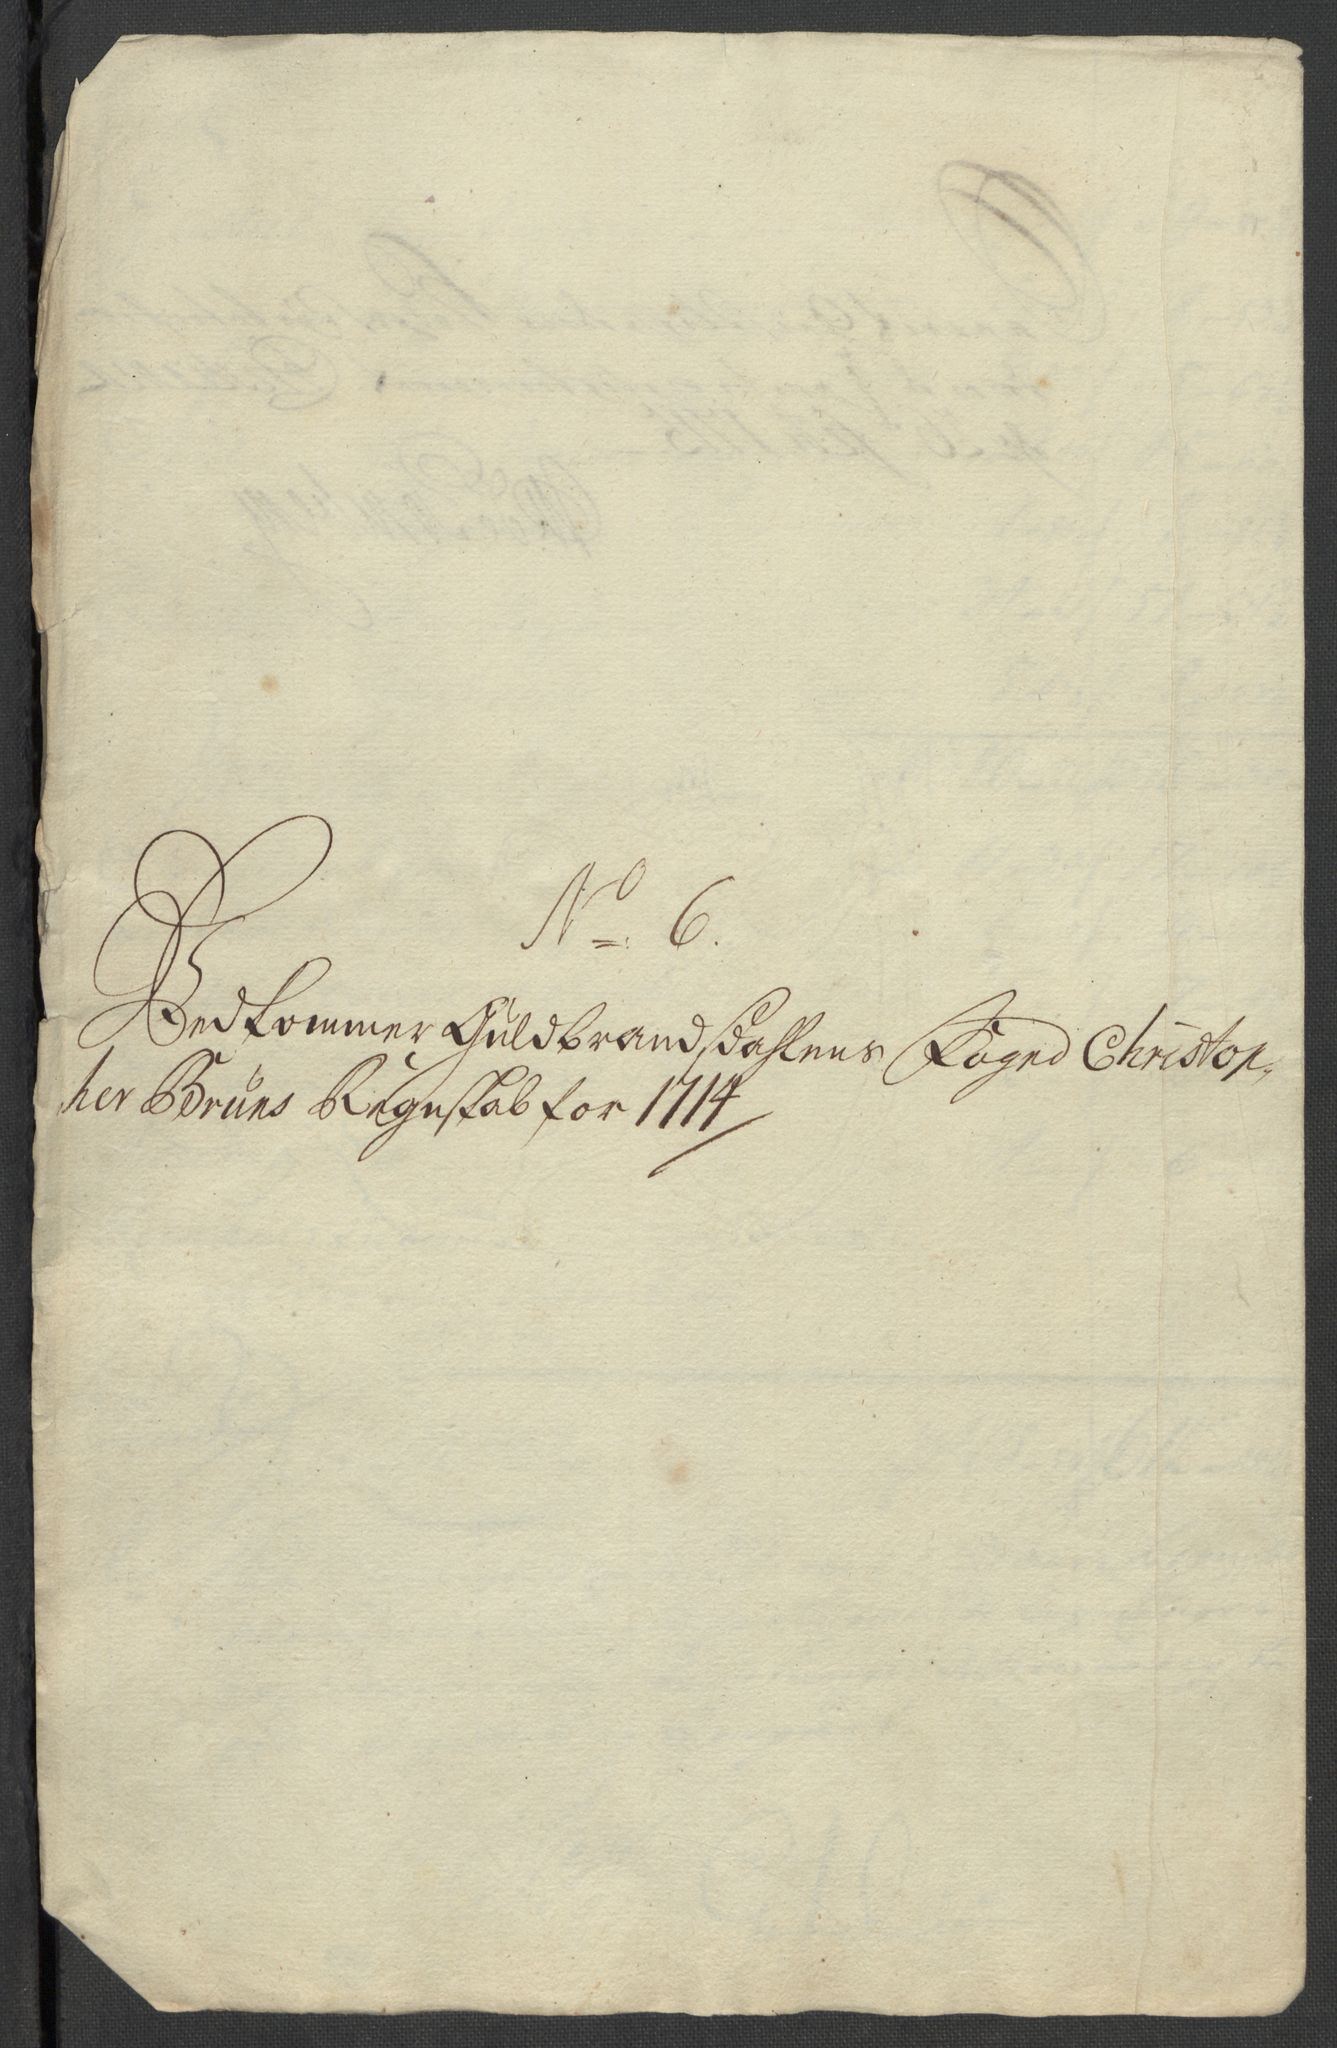 No 6.
Vedkommer Guldbrandsdahlens Foged Christop,
her Bruuns Regnskab for 1714